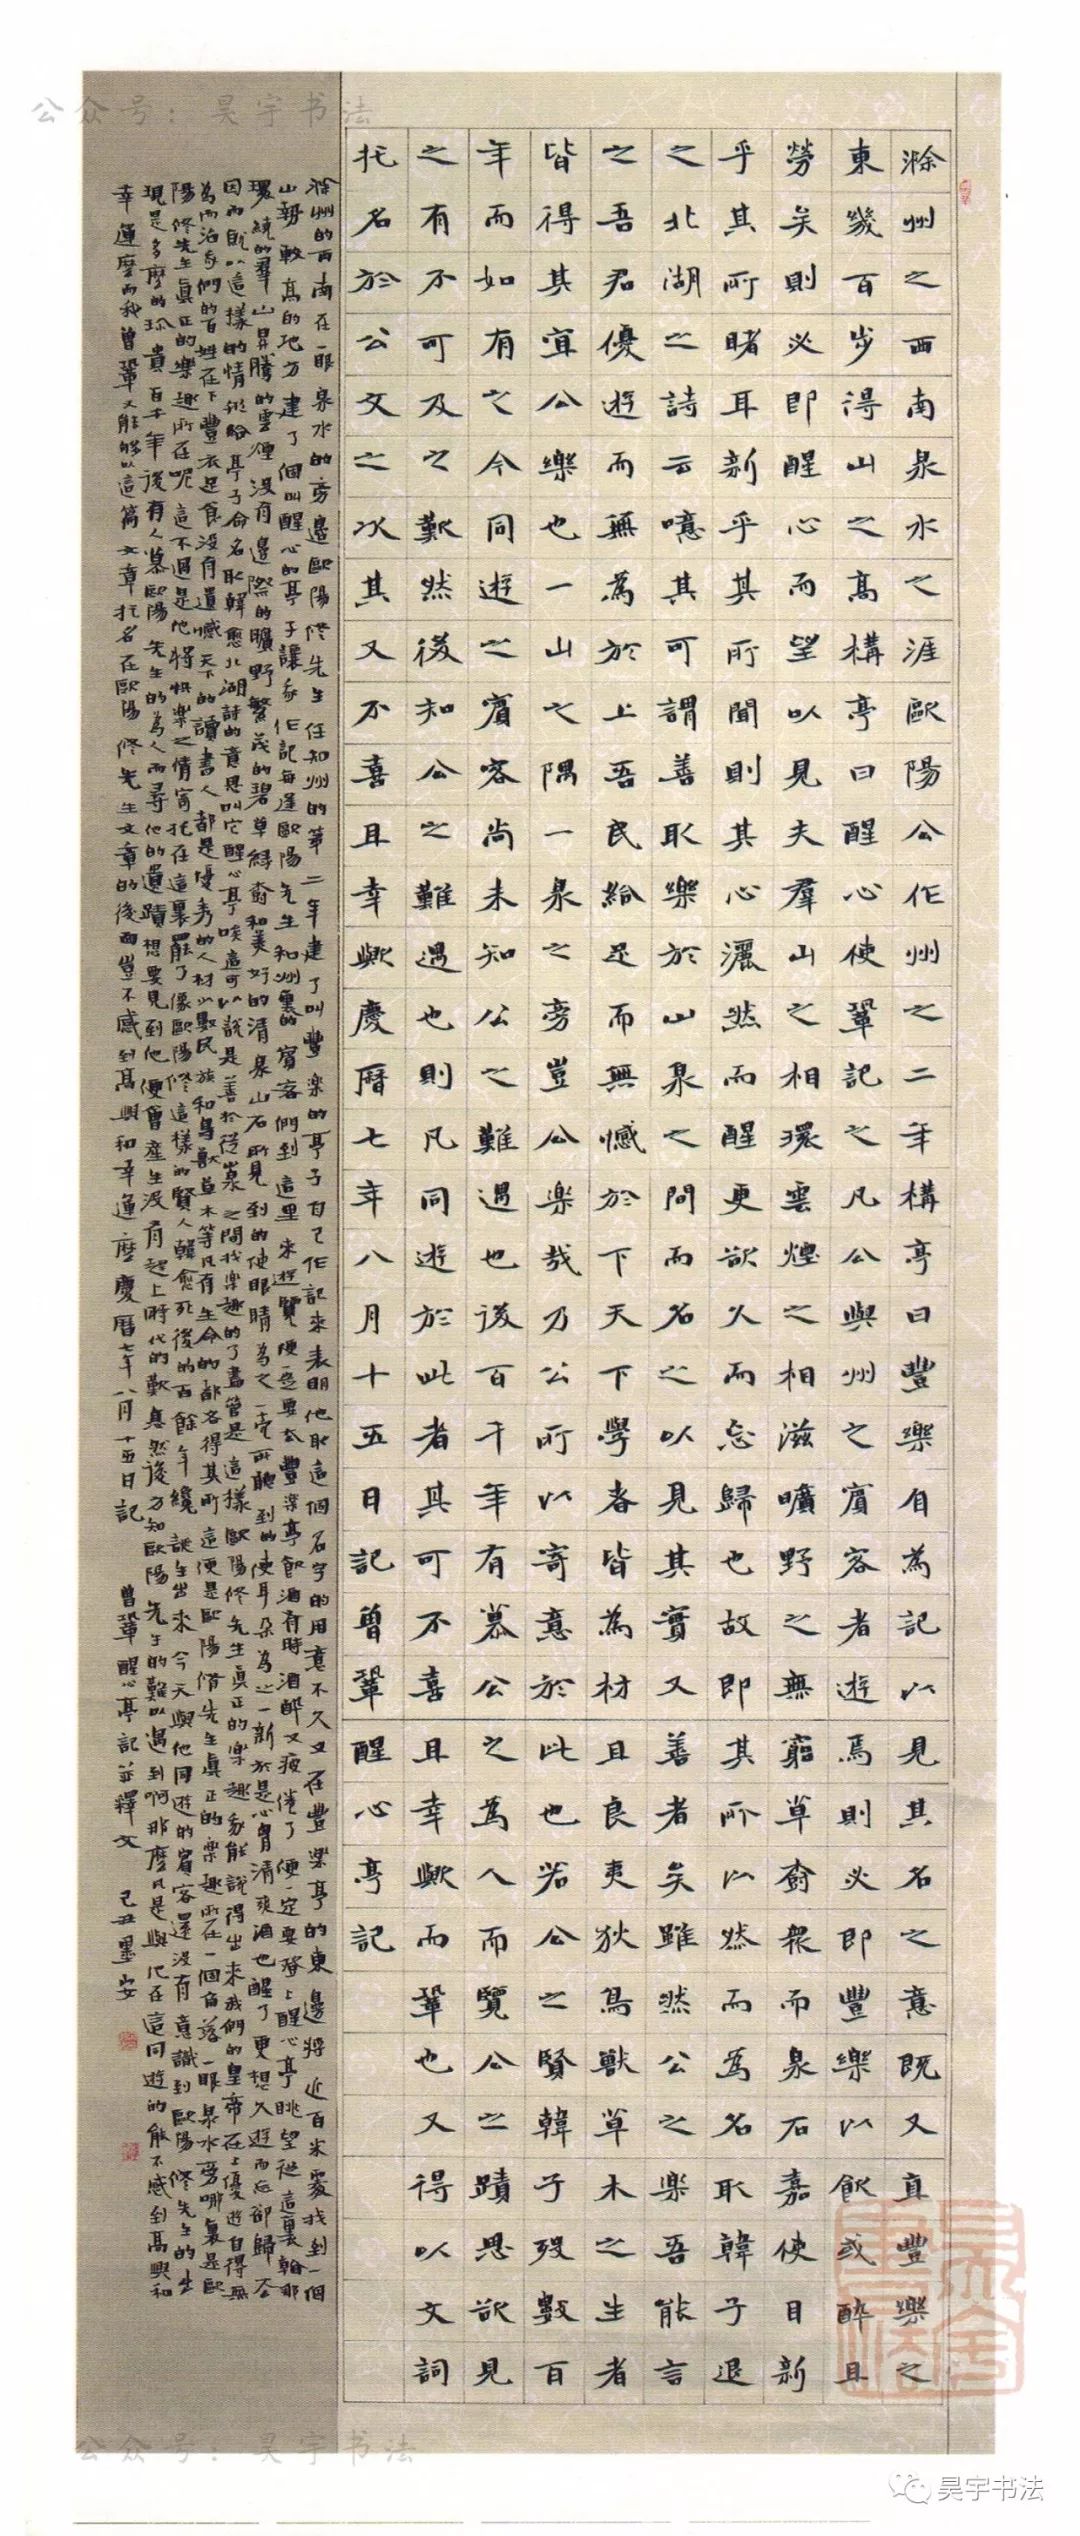 滁州之西南泉水之涯歐陽公作州之二年構亭曰豐樂自為記以見其名之意既又直豐樂之
東幾百步得山之高構亭曰醒心使鞏記之凡公與州之賓客者遊焉則必即豐樂以飲或醉且
勞矣則必即醒心而望以見夫羣山之相環雲煙之相滋曠野之無窮草樹衆而泉石嘉使目新
乎其所睹耳新乎其所聞則其心灑然而醒更欲久而忘歸也故即其所以然而為名取韓子退
之之北湖之詩云噫其可謂善取樂於山泉之間而名之以見其實又善者矣雖然公之樂吾能言
之吾君優遊而無為於上吾民給足而無憾於下天下學者皆為材且良夷狄鳥獸草木之生者
皆得其宜公樂也一山之隅一泉之旁豈公樂哉乃公所以寄意於此也若公之賢韓子歿數百
年而如有之今同遊之賓客尚未知公之難遇也後百千年有慕公之為人而覽公之蹟思欲見
之有不可及之歎然後知公之難遇也則凡同遊於此者其可不喜且幸歟而鞏也又得以文詞
托名於公文之次其又不喜且幸歟慶曆七年八月十五日記曾鞏醒心亭記
滁州的西南在一眼泉水的旁邊歐陽修先生任知州的第二年建了叫豐樂的亭子自己作記來表明他取這個名字的用意不久又在豐樂亭的東邊將近百米處找到一個
山勢較高的地方建了個叫醒心的亭子讓我作記每逢歐陽先生和州裏的賓客們到這里來遊覽便一定要去豐樂亭飲酒有時酒醉又疲倦了便一定要登上醒心亭眺望從這裏翰那
環繞的羣山昇騰的雲煙沒有邊際的曠野繁茂的碧草綠樹和美好的清泉山石所見到的使眼睛為之一亮所聽到的使耳朵為之一新於是心胷清爽酒也醒了更想久遊而忘卻歸去
因而就以這樣的情形給亭子命名取韓愈北湖詩的意思叫它醒心亭唉這可以說是善於從山泉之間找樂趣的了盡管是這樣歐陽修先生真正的樂趣我能說得出來我們的皇帝在上優遊自得無
為而治我們的百姓在下豐衣足食沒有遺憾天下的讀書人都是優秀的人材少數民族和鳥獸草木等凡有生命的都各得其所這便是歐陽脩先生真正的樂趣所在一個角落一眼泉水旁哪裏是歐
陽修先生真正的樂趣所在呢這不過是他將快樂之情寄托在這裏罷了像歐陽修這樣的賢人韓愈死後的百餘年纔誕生出來今天與他同遊的賓客還沒有意識到歐陽修先生的出
現是多麼的珍貴百千年後有人慕歐陽先生的為人而尋他的遺蹟想要見到他便會產生沒有趕上時代的歎息然後方知歐陽先生的難以遇到啊那麼凡是與他在這同遊的能不感到高興和
幸運麼而我曾鞏又能夠以這篇文章托名在歐陽修先生文章的後面豈不感到高興和幸運麼慶曆七年八月十五日記 曾鞏醒心亭記並釋文 己丑墨安
公众号：昊宇书法
公众号：昊宇书法
昊宇书法